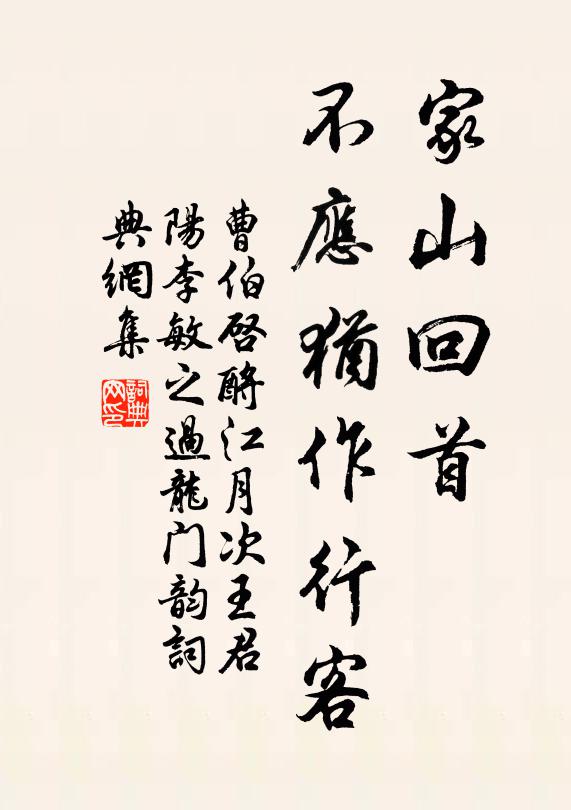 家山回首
不應猶作行客
曹伯啓酹江月次王君
陽李敏之過龍门韵詞
典網集
詞典网印